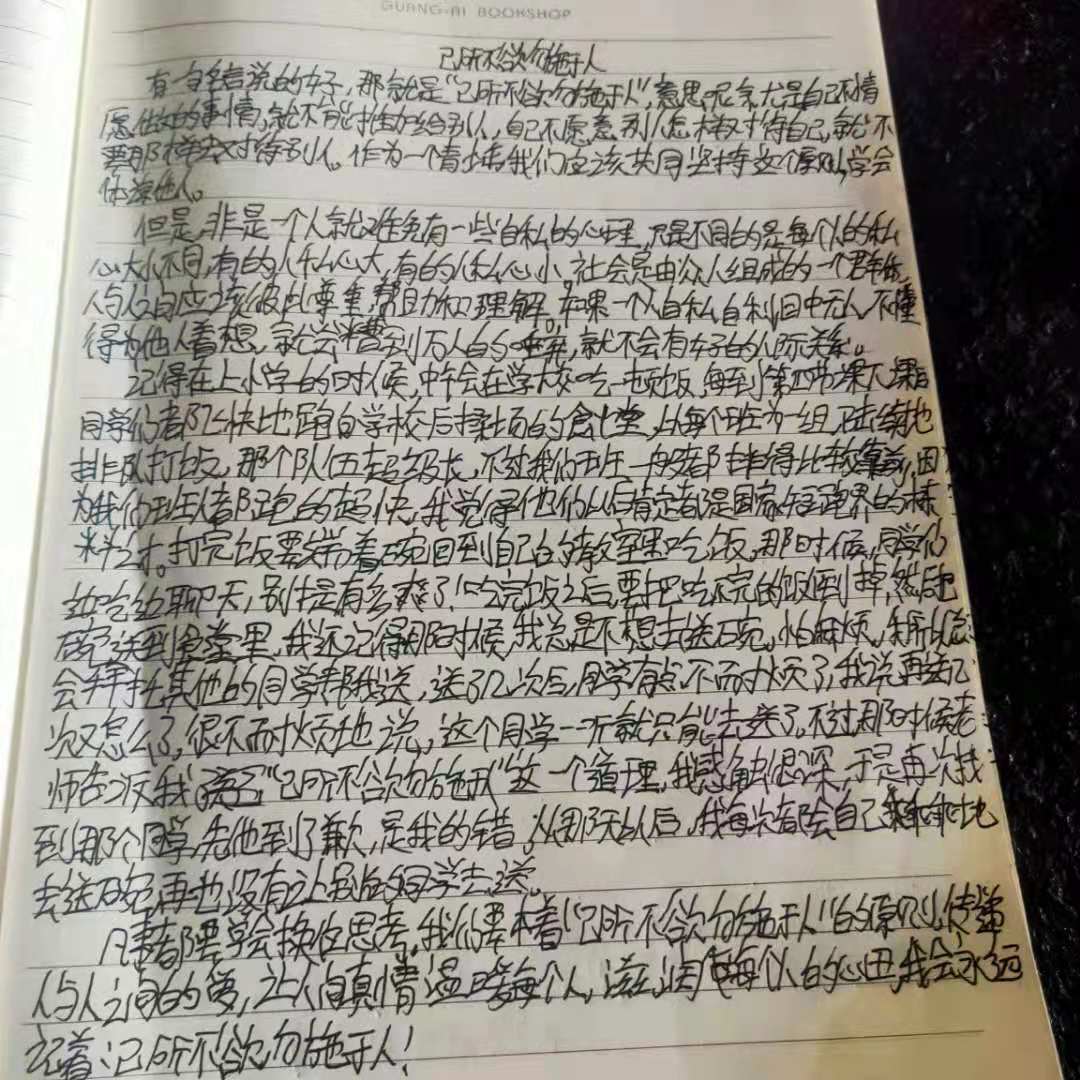 GUANG-AI BOOKSHOP
己所不欲勿施于人
有一句名言说的好,那就是“己所不欲勿施于人”,意思呢就是自己不情
愿做的事情,就不能推加给别人,自己不愿意别人怎样对待自己,就不
要那样去对待别人。作为一个青少年我们应该共同坚持这个原则,学会
体谅他人。
但是,非是一个人就难免有一些自私的心理,只是不同的是每个人的私
心大小不同,有的人私心大,有的人私心小,社会是由众人组成的一个群体,
人与人之间应该彼此尊重,帮助和理解。如果一个人自私自利目中无人,不懂
得为他人着想,就会糟到万人的唾弃,就不会有好的人际关系。
记得在上小学的时候,中午会在学校吃一顿饭,每到第四节课下课
同学们都飞快地跑向学校后操场的食堂,以每个班为一组,陆续地
排队打饭,那个队伍超级长,不过我们班一般都排得比较靠前,因
为我们班都跑的超快,我觉得他们以后肯定都是国家短跑界的栋
料。打完饭要端着碗回到自己的教室里吃饭,那时候,同学们
边吃边聊天,别提有多爽了!吃完饭之后,要把吃不完的饭倒掉,然后把
碗送到食堂里,我还记得那时候,我总是不想去送碗,怕麻烦,所以总
会拜托其他的同学帮我送,送了几次后,同学有点不耐烦了,我说再送几
次又怎么了,很不耐烦地说,这个同学一听就只能去送了。不过那时候老
师告诉我“己所不欲勿施于人”这一个道理,我感触很深,于是再次找
到那个同学,先他到了歉,是我的错。从那天以后,我每次都会自己乖乖地
去送碗,再也没有让别的同学去送。
凡事都要学会换位思考,我们要本着“己所不欲勿施于人”的原则,传递
人与人之间的爱,让人间真情温暖每个人,滋润每个人的心田,我会永远
记着:己所不欲勿施于人!